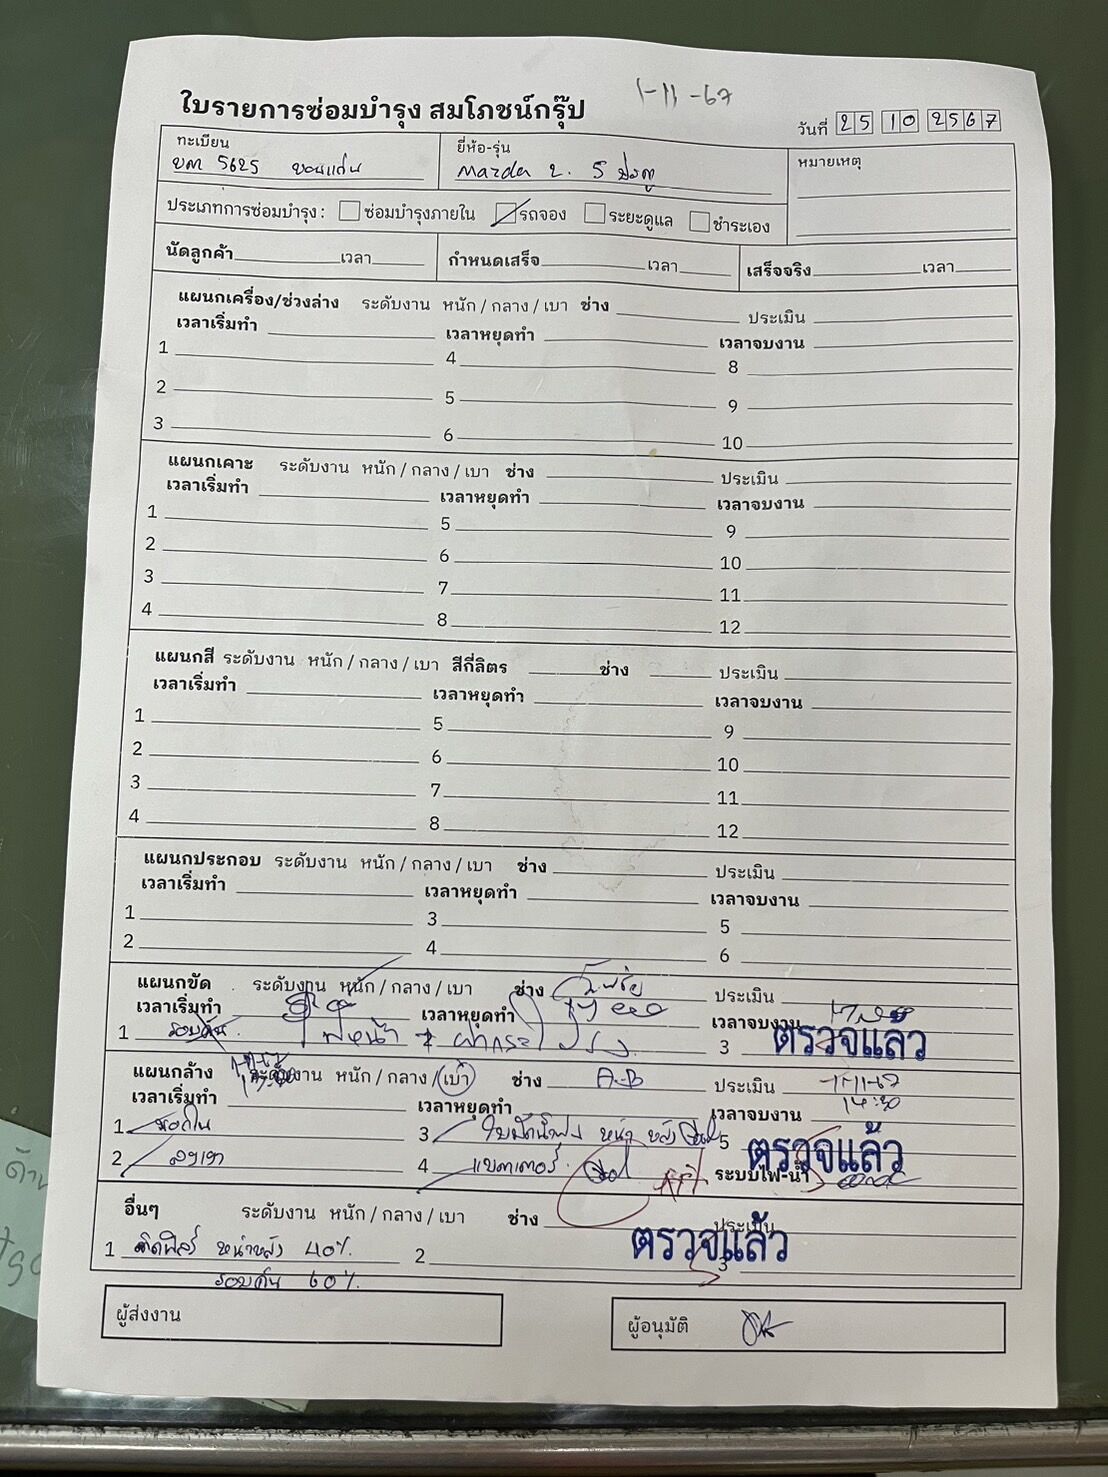 1-11-67
ใบรายการซ่อมบำรุง สมโภชน์กรุ๊ป
วันที่ 25 10 2567
ทะเบียน ขต 5625 ขอนแก่น
ยี่ห้อ-รุ่น Mazda 2. 5 ประตู
หมายเหตุ
ประเภทการซ่อมบำรุง : ซ่อมบำรุงภายใน รถจอง ระยะดูแล ชำระเอง
นัดลูกค้า เวลา กำหนดเสร็จ เวลา เสร็จจริง เวลา
แผนกเครื่อง/ช่วงล่าง ระดับงาน หนัก / กลาง / เบา ช่าง ประเมิน
เวลาเริ่มทำ เวลาหยุดทำ เวลาจบงาน
1 4 8
2 5 9
3 6 10
แผนกเคาะ ระดับงาน หนัก / กลาง / เบา ช่าง ประเมิน
เวลาเริ่มทำ เวลาหยุดทำ เวลาจบงาน
1 5 9
2 6 10
3 7 11
4 8 12
แผนกสี ระดับงาน หนัก / กลาง / เบา สีกี่ลิตร ช่าง ประเมิน
เวลาเริ่มทำ เวลาหยุดทำ เวลาจบงาน
1 5 9
2 6 10
3 7 11
4 8 12
แผนกประกอบ ระดับงาน หนัก / กลาง / เบา ช่าง ประเมิน
เวลาเริ่มทำ เวลาหยุดทำ เวลาจบงาน
1 3 5
2 4 6
แผนกขัด ระดับงาน หนัก / กลาง / เบา ช่าง ประเมิน
เวลาเริ่มทำ เวลาหยุดทำ เวลาจบงาน
1 รอบคัน 3 ตรวจแล้ว
แผนกล้าง ระดับงาน หนัก / กลาง / เบา ช่าง A-B ประเมิน 1-11-67
เวลาเริ่มทำ เวลาหยุดทำ เวลาจบงาน 14:30
1 ซักใน 3 ใบปัดน้ำฝน หน้า หลัง 5 ตรวจแล้ว
2 ลงเงา 4 แบตเตอรี่ ระบบไฟ-น้ำ
อื่นๆ ระดับงาน หนัก / กลาง / เบา ช่าง ประเมิน
1 ติดฟิล์ม หน้าหลัง 40% 2 ตรวจแล้ว 3
รอบคัน 60%
ผู้ส่งงาน ผู้อนุมัติ